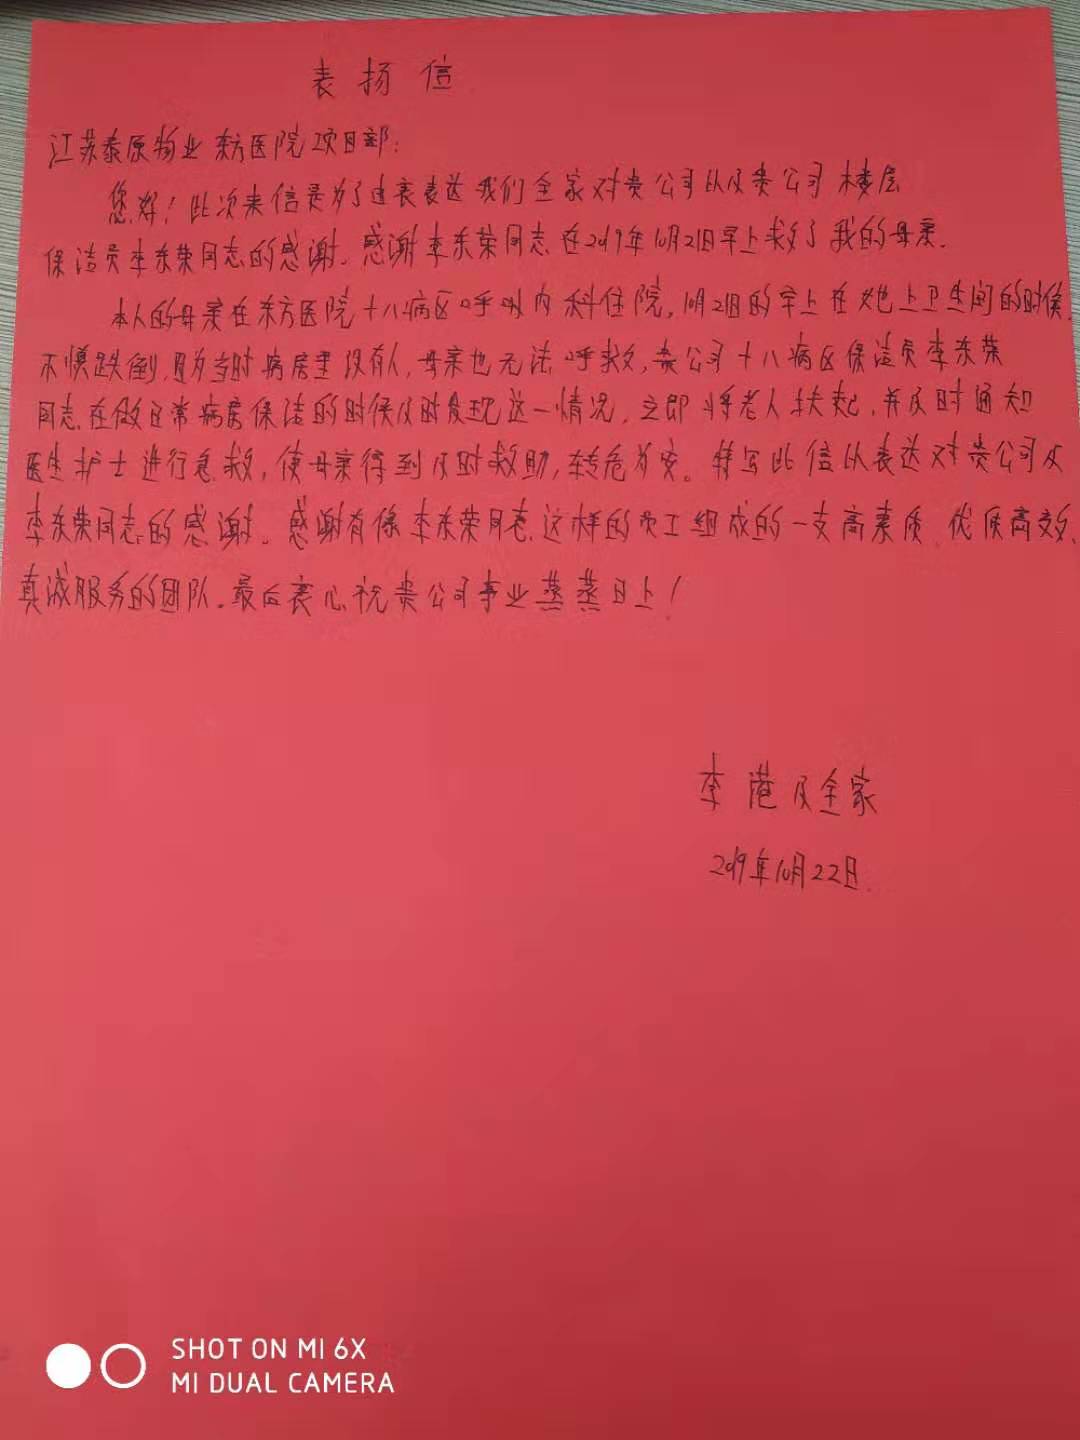 表扬信
江苏泰原物业东方医院项目部：
您好！此次来信是为了由衷表达我们全家对贵公司以及贵公司楼层
保洁员李东荣同志的感谢。感谢李东荣同志在2019年10月21日早上救了我的母亲。
本人的母亲在东方医院十八病区呼吸内科住院，10月21日的早上在她上卫生间的时候，
不慎跌倒，因为当时病房里没有人，母亲也无法呼救，贵公司十八病区保洁员李东荣
同志，在做日常病房保洁的时候及时发现这一情况，立即将老人扶起，并及时通知
医生护士进行急救，使母亲得到及时救助，转危为安。特写此信以表达对贵公司及
李东荣同志的感谢。感谢有像李东荣同志这样的员工组成的一支高素质、优质高效、
真诚服务的团队。最后衷心祝贵公司事业蒸蒸日上！
李港及全家
2019年10月22日.
SHOT ON MI 6X
MI DUAL CAMERA